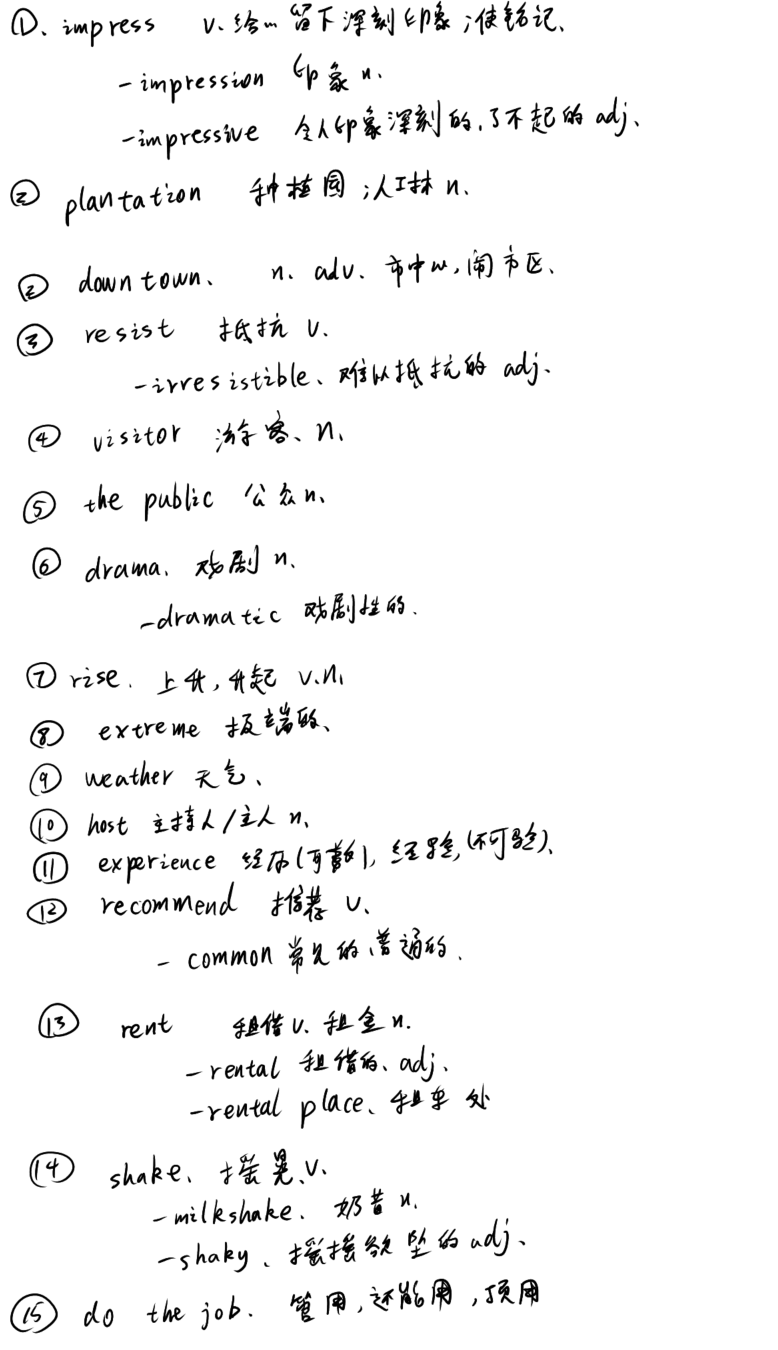 ①. impress v. 给… 留下深刻印象;使铭记、
-impression 印象 n.
-impressive 令人印象深刻的,了不起的 adj、
② plantation 种植园;人工林 n.
② downtown、 n. adv. 市中心,闹市区、
③ resist 抵抗 v.
-irresistible、难以抵抗的 adj.
④ visitor 游客、n、
⑤ the public 公众n、
⑥ drama、戏剧 n.
-dramatic 戏剧性的.
⑦ rise. 上升,升起 v.n、
⑧ extreme 极端的、
⑨ weather 天气、
⑩ host 主持人/主人 n、
⑪ experience 经历(可数), 经验,(不可数)、
⑫ recommend 推荐 v、
- common 常见的、普通的.
⑬ rent 租借v. 租金n.
-rental 租借的、adj、
-rental place、租车处
⑭ shake、摇晃、v.
-milkshake. 奶昔 n.
-shaky、摇摇欲坠的 adj、
⑮ do the job. 管用,还能用,顶用